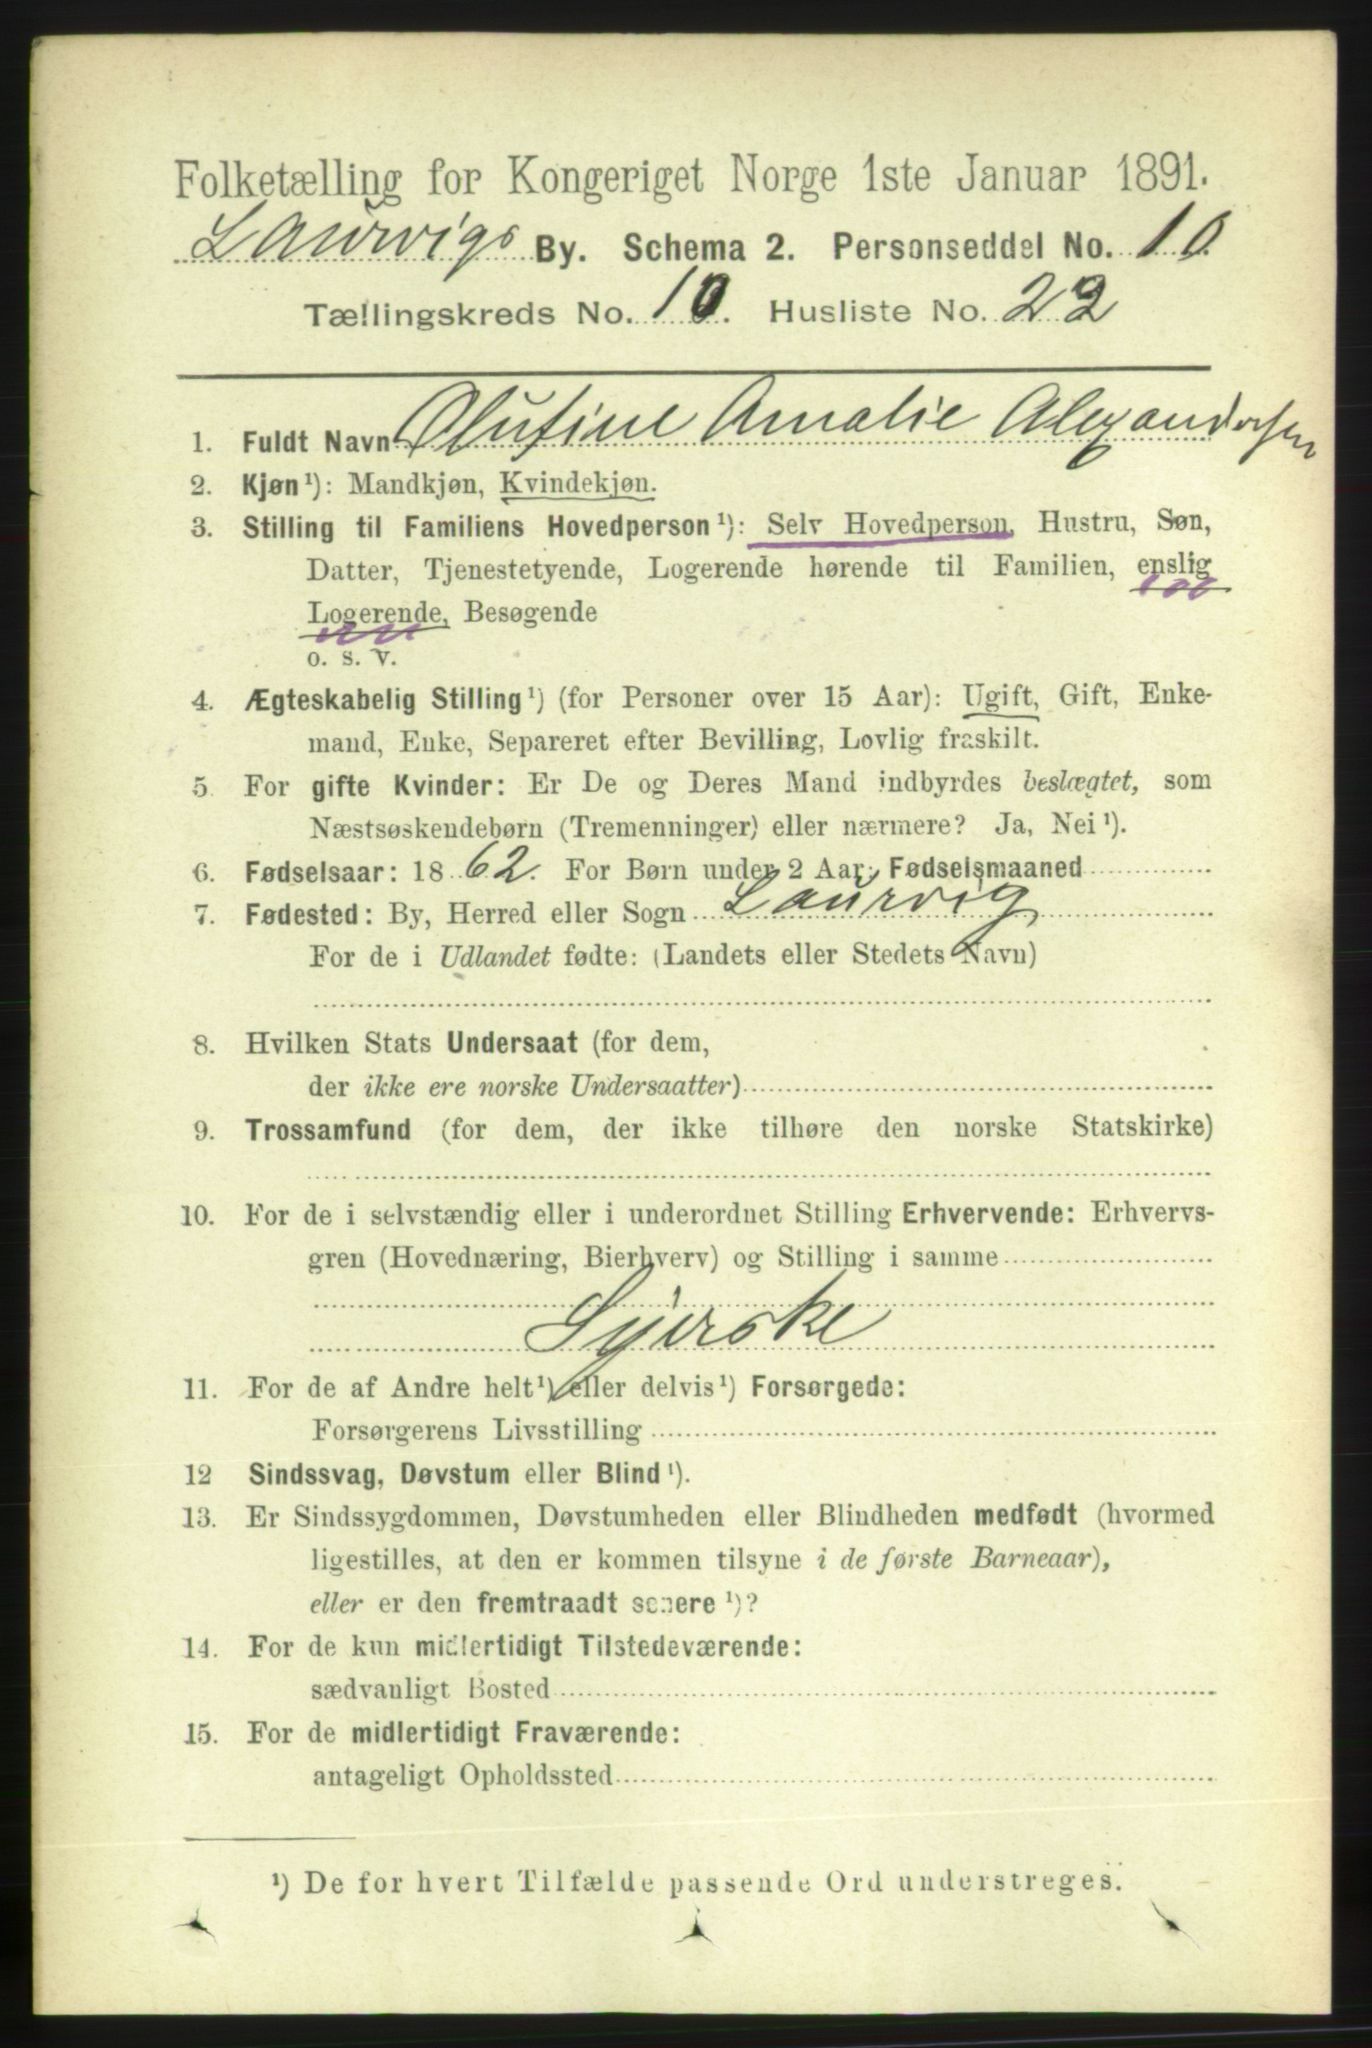 Folketælling for Kongeriget Norge 1ste Januar 1891.
Laurvigs By. Schema 2. Personseddel No. 10.
Tællingskreds No. 10. Husliste No. 22
1. Fuldt Navn Olufine Amalie Alexandersen
2. Kjøn ¹): Mandkjøn, Kvindekjøn.
3. Stilling til Familiens Hovedperson ¹): Selv Hovedperson, Hustru, Søn,
Datter, Tjenestetyende, Logerende hørende til Familien, enslig
Logerende, Besøgende
o. s. v.
4. Ægteskabelig Stilling ¹) (for Personer over 15 Aar): Ugift, Gift, Enke-
mand, Enke, Separeret efter Bevilling, Lovlig fraskilt.
5. For gifte Kvinder: Er De og Deres Mand indbyrdes beslægtet, som
Næstsøskendebørn (Tremenninger) eller nærmere? Ja, Nei ¹).
6. Fødselsaar: 1862. For Børn under 2 Aar: Fødselsmaaned
7. Fødested: By, Herred eller Sogn Laurvig
For de i Udlandet fødte: (Landets eller Stedets Navn)
8. Hvilken Stats Undersaat (for dem,
der ikke ere norske Undersaatter)
9. Trossamfund (for dem, der ikke tilhøre den norske Statskirke)
10. For de i selvstændig eller i underordnet Stilling Erhvervende: Erhvervs-
gren (Hovednæring, Bierhverv) og Stilling i samme
Syerske
11. For de af Andre helt ¹) eller delvis ¹) Forsørgede:
Forsørgerens Livsstilling
12 Sindssvag, Døvstum eller Blind ¹).
13. Er Sindssygdommen, Døvstumheden eller Blindheden medfødt (hvormed
ligestilles, at den er kommen tilsyne i de første Barneaar),
eller er den fremtraadt senere ¹)?
14. For de kun midlertidigt Tilstedeværende:
sædvanligt Bosted
15. For de midlertidigt Fraværende:
antageligt Opholdssted
¹) De for hvert Tilfælde passende Ord understreges.